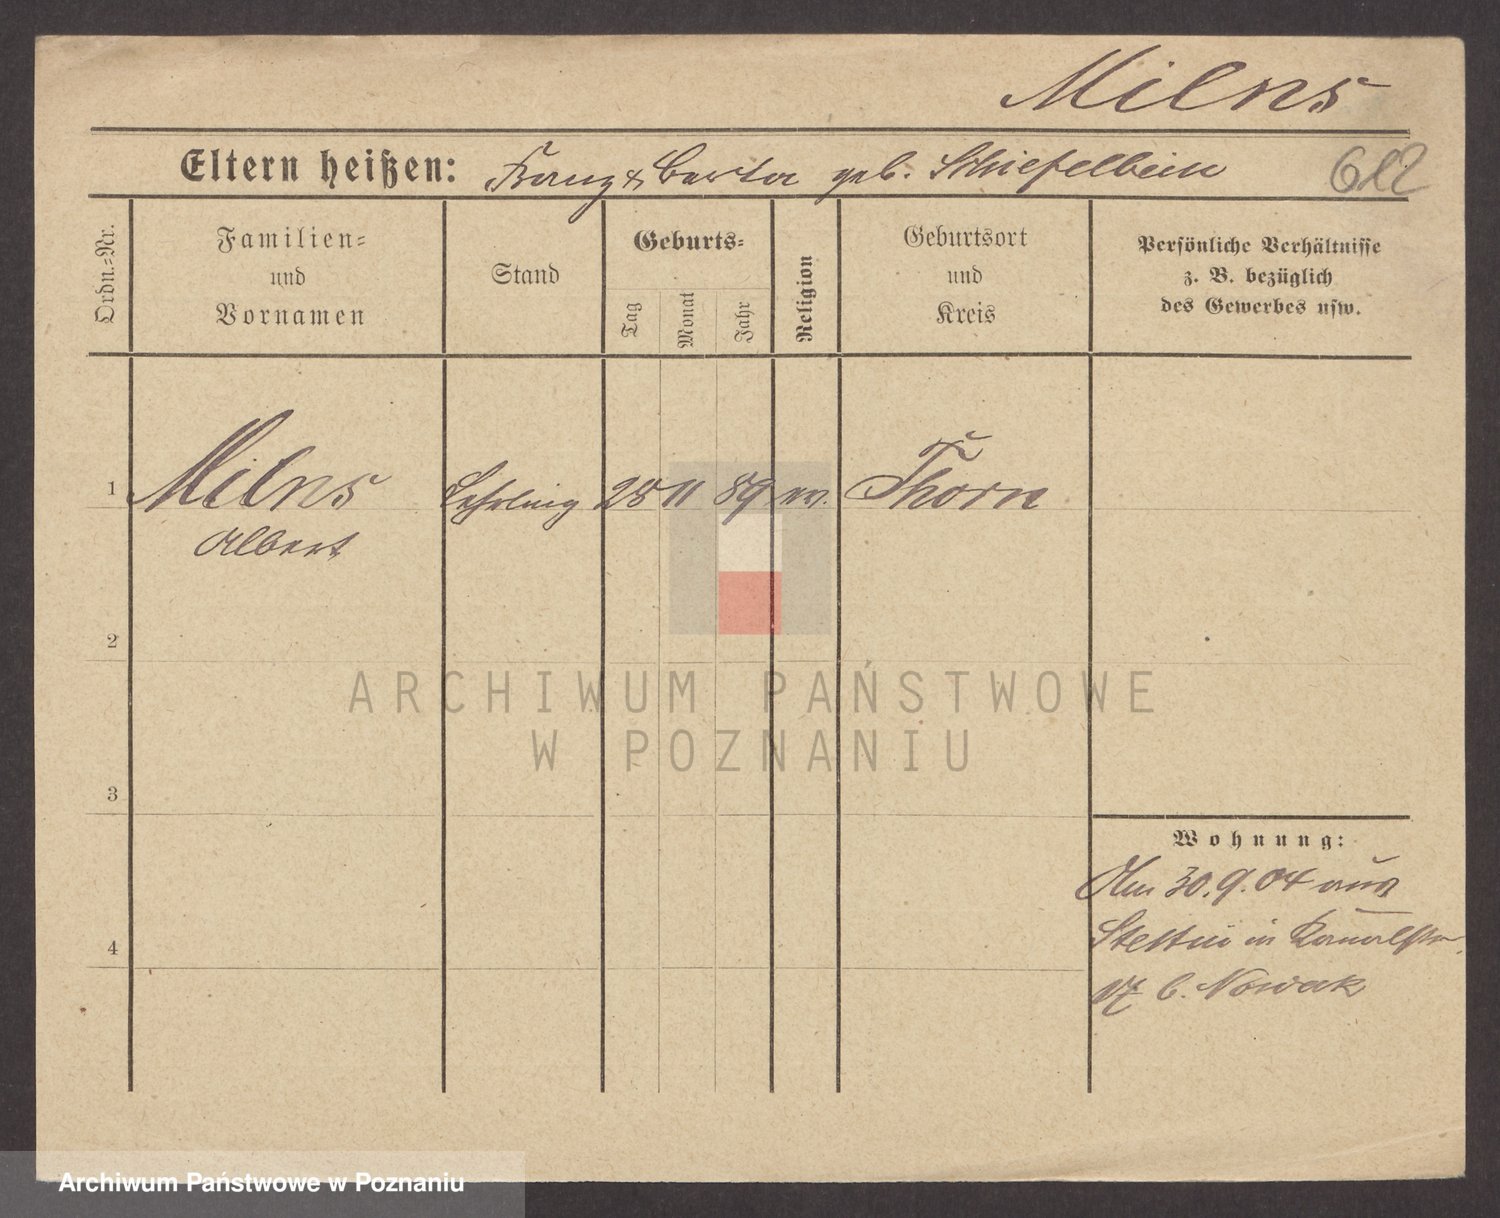 Milns
Eltern heißen: Franz & Berta geb. Schiefelbein 612
Ordn.-Nr.
Familien-
und
Vornamen
Stand
Geburts-
Tag Monat Jahr
Religion
Geburtsort
und
Kreis
Persönliche Verhältnisse
z. B. bezüglich
des Gewerbes usw.
1 Milns Lehrling 25 11 89 ev. Thorn
Albert
2
ARCHIWUM PAŃSTWOWE
W POZNANIU
3
Wohnung:
Am 30.9.04 aus
Stettin in Kanalstr.
17 b. Nowak
4
Archiwum Państwowe w Poznaniu